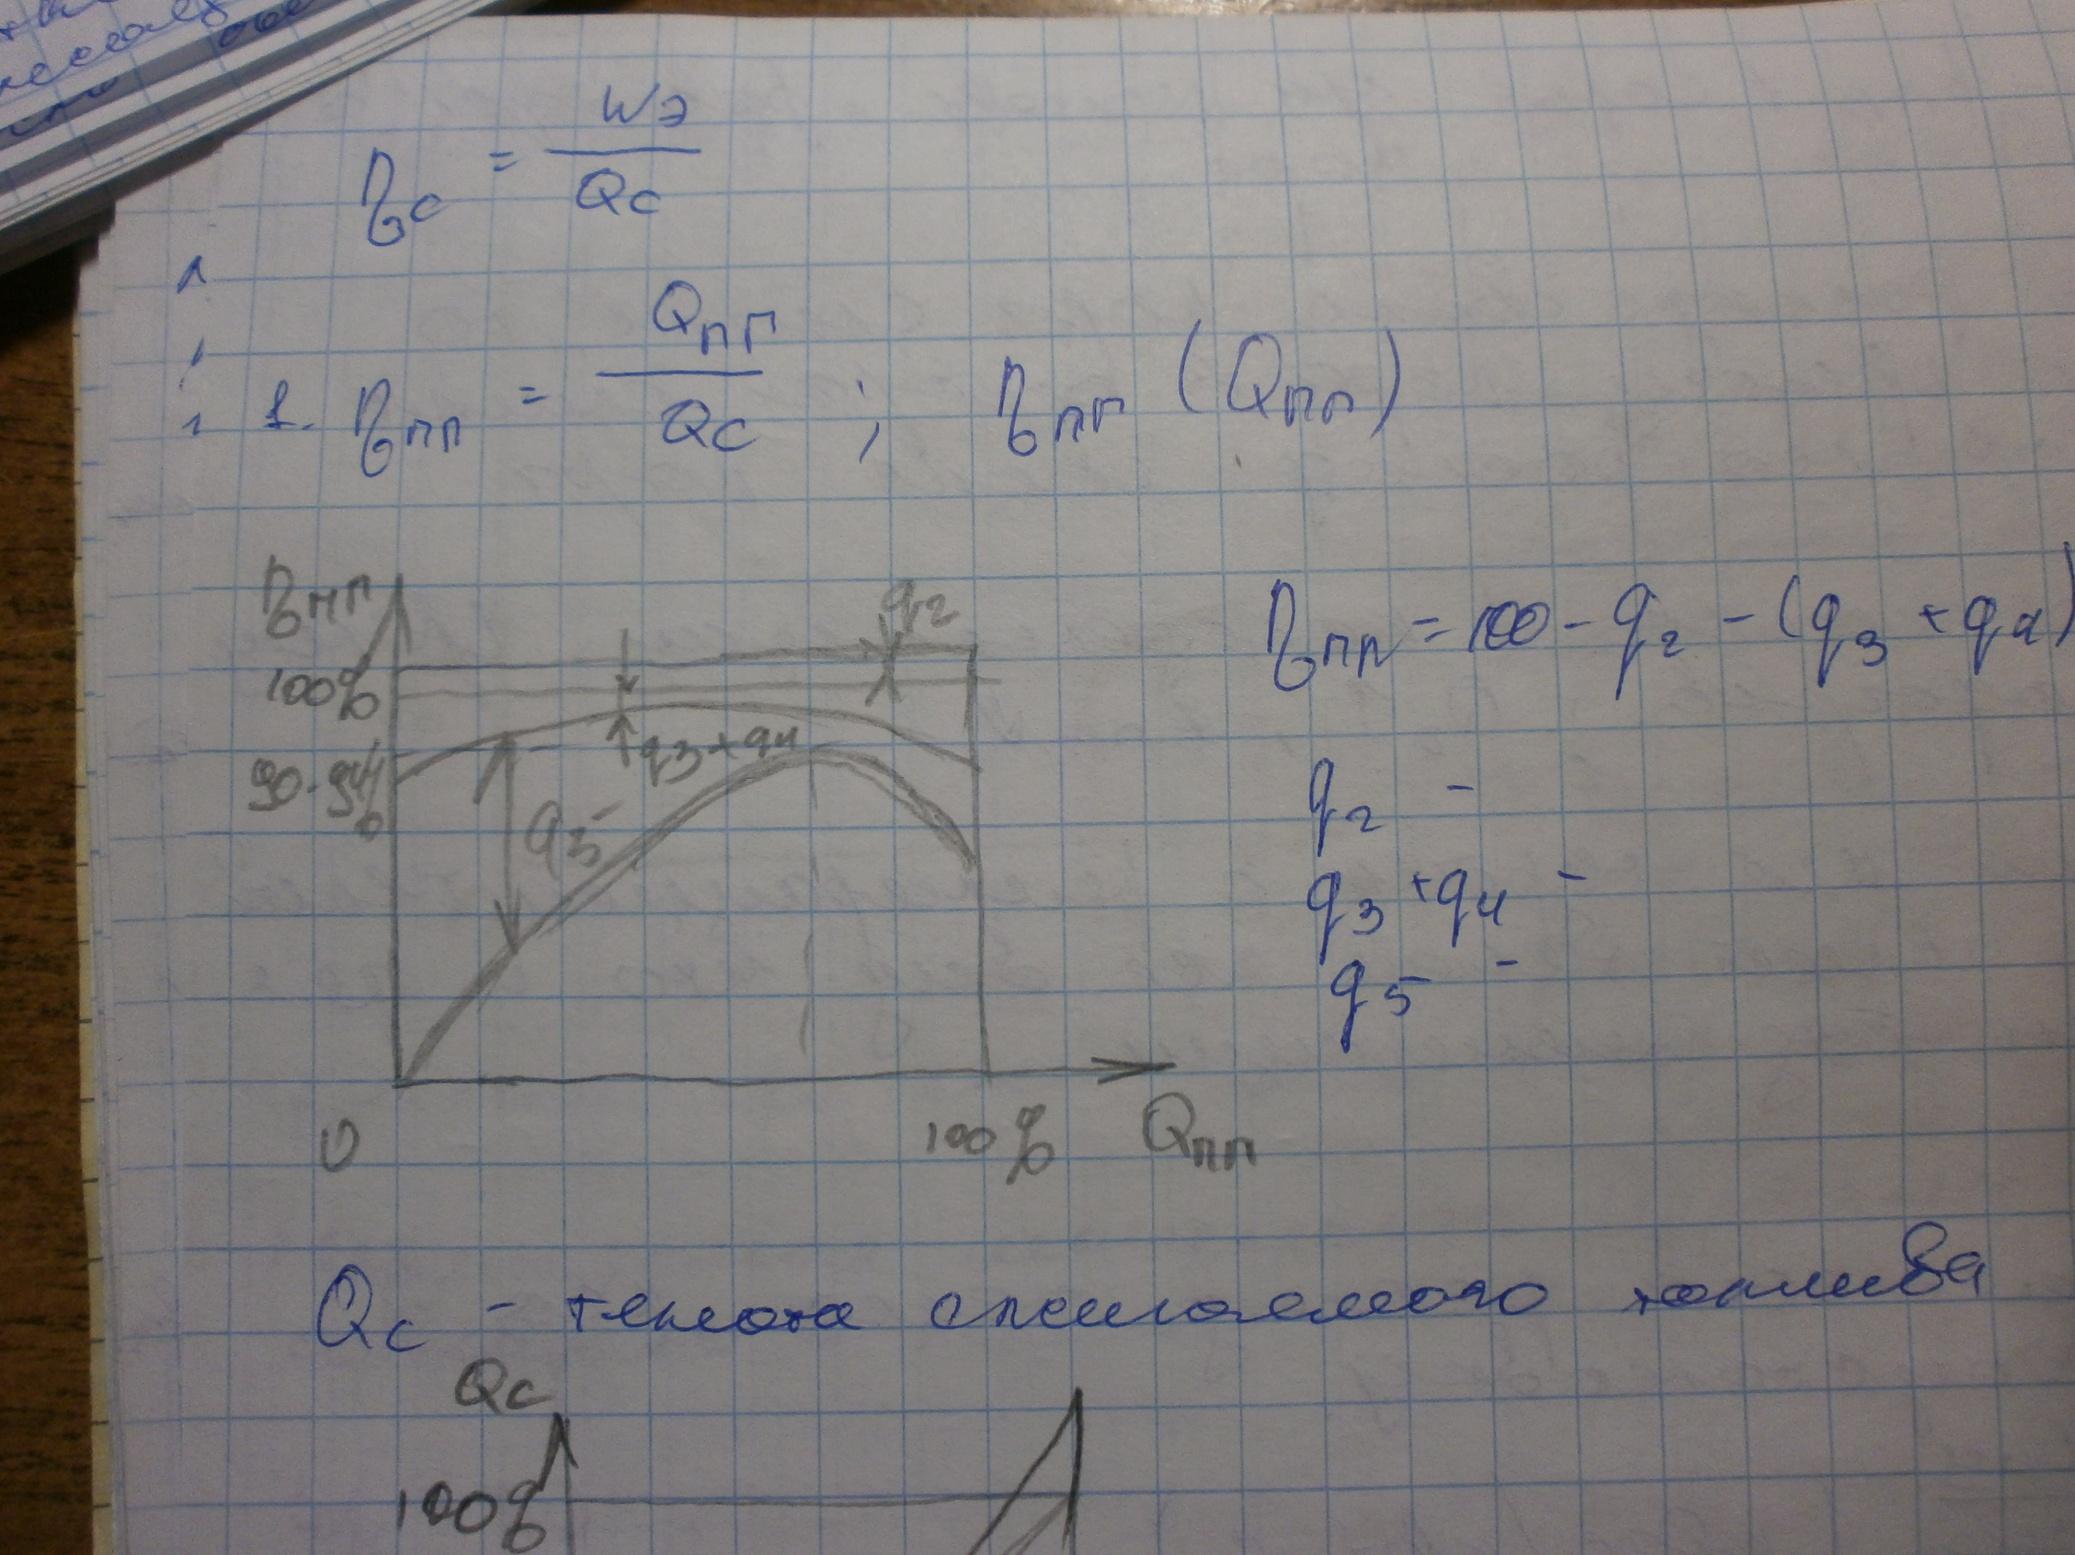 ηс = Wэ / Qс
1. ηпп = Qпп / Qс ; ηпп (Qпп)
ηпп
q2
100%
90-94%
q3+q4
q5
0
100%
Qпп
ηпп = 100 - q2 - (q3 + q4)
q2 -
q3 + q4 -
q5 -
Qс - теплота сжигаемого топлива
Qс
100%